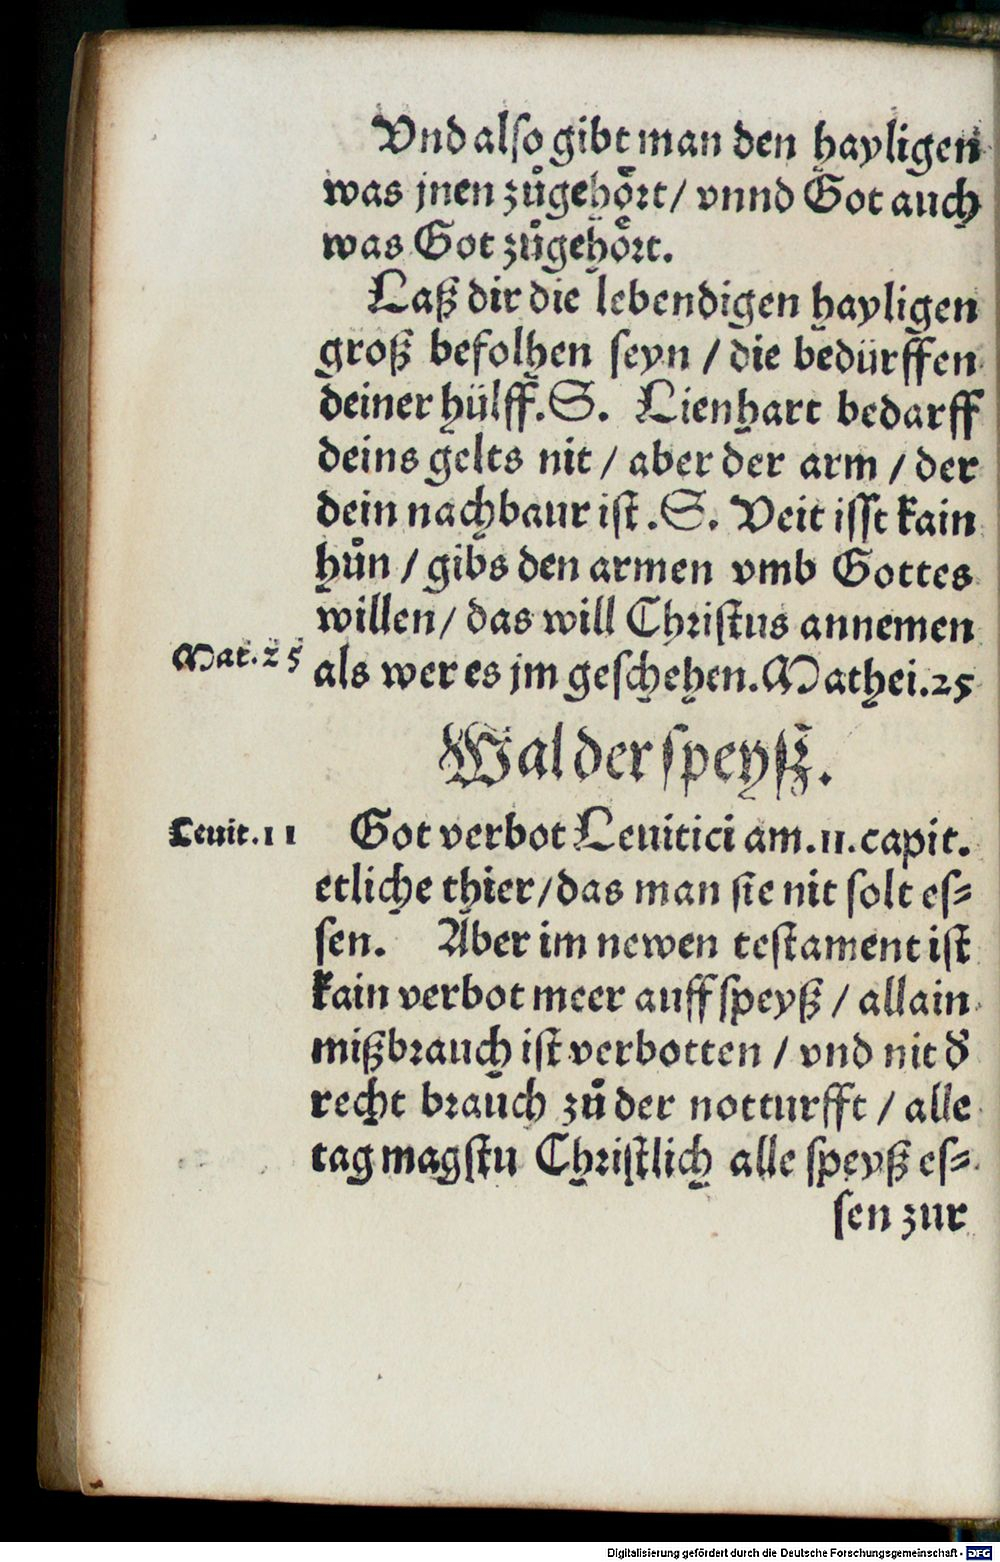 Vnd also gibt man den hayligen
was jnen zůgehoͤrt / vnnd Got auch
was Got zůgehoͤrt.
Laß dir die lebendigen hayligen
groß befolhen seyn / die bedürffen
deiner hülff. S. Lienhart bedarff
deins gelts nit / aber der arm / der
dein nachbaur ist. S. Veit isst kain
hůn / gibs den armen vmb Gottes
willen / das will Christus annemen
Mat. 25
als wer es jm geschehen. Mathei. 25
Wal der speyß.
Leuit. 11
Got verbot Leuitici am. 11. capit.
etliche thier / das man sie nit solt es⸗
sen. Aber im newen testament ist
kain verbot meer auff speyß / allain
mißbrauch ist verbotten / vnd nit d̓
recht brauch zů der notturfft / alle
tag magstu Christlich alle speyß es⸗
sen zur
Digitalisierung gefördert durch die Deutsche Forschungsgemeinschaft - DFG